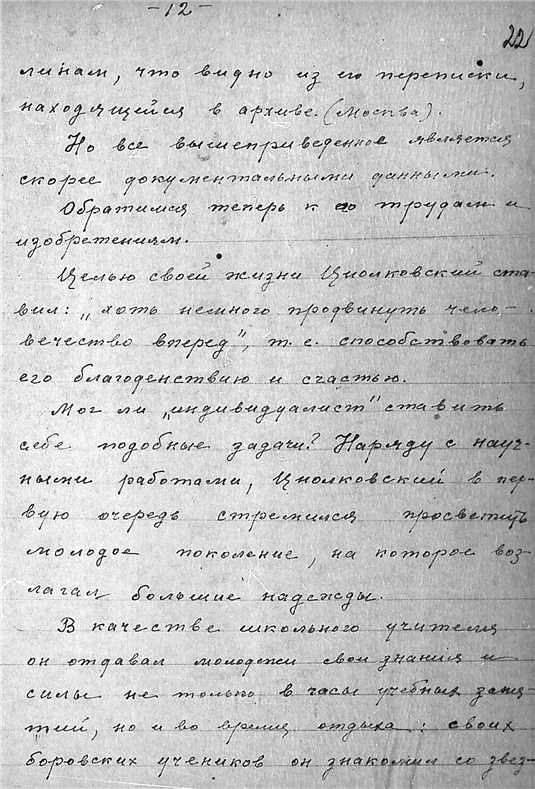 -12-
22
линам, что видно из его переписки,
находящейся в архиве. (Москва).
Но все вышеприведенное является
скорее документальными данными.
Обратимся теперь к его трудам и
изобретениям.
Целью своей жизни Циолковский ста-
вил: „хоть немного продвинуть чело-
вечество вперед", т. е. способствовать
его благоденствию и счастью.
Мог ли „индивидуалист" ставить
себе подобные задачи? Наряду с науч-
ными работами, Циолковский в пер-
вую очередь стремился просветить
молодое поколение, на которое воз-
лагал большие надежды.
В качестве школьного учителя
он отдавал молодежи свои знания и
силы не только в часы учебных заня-
тий, но и во время отдыха: своих
боровских учеников он знакомил со звез-